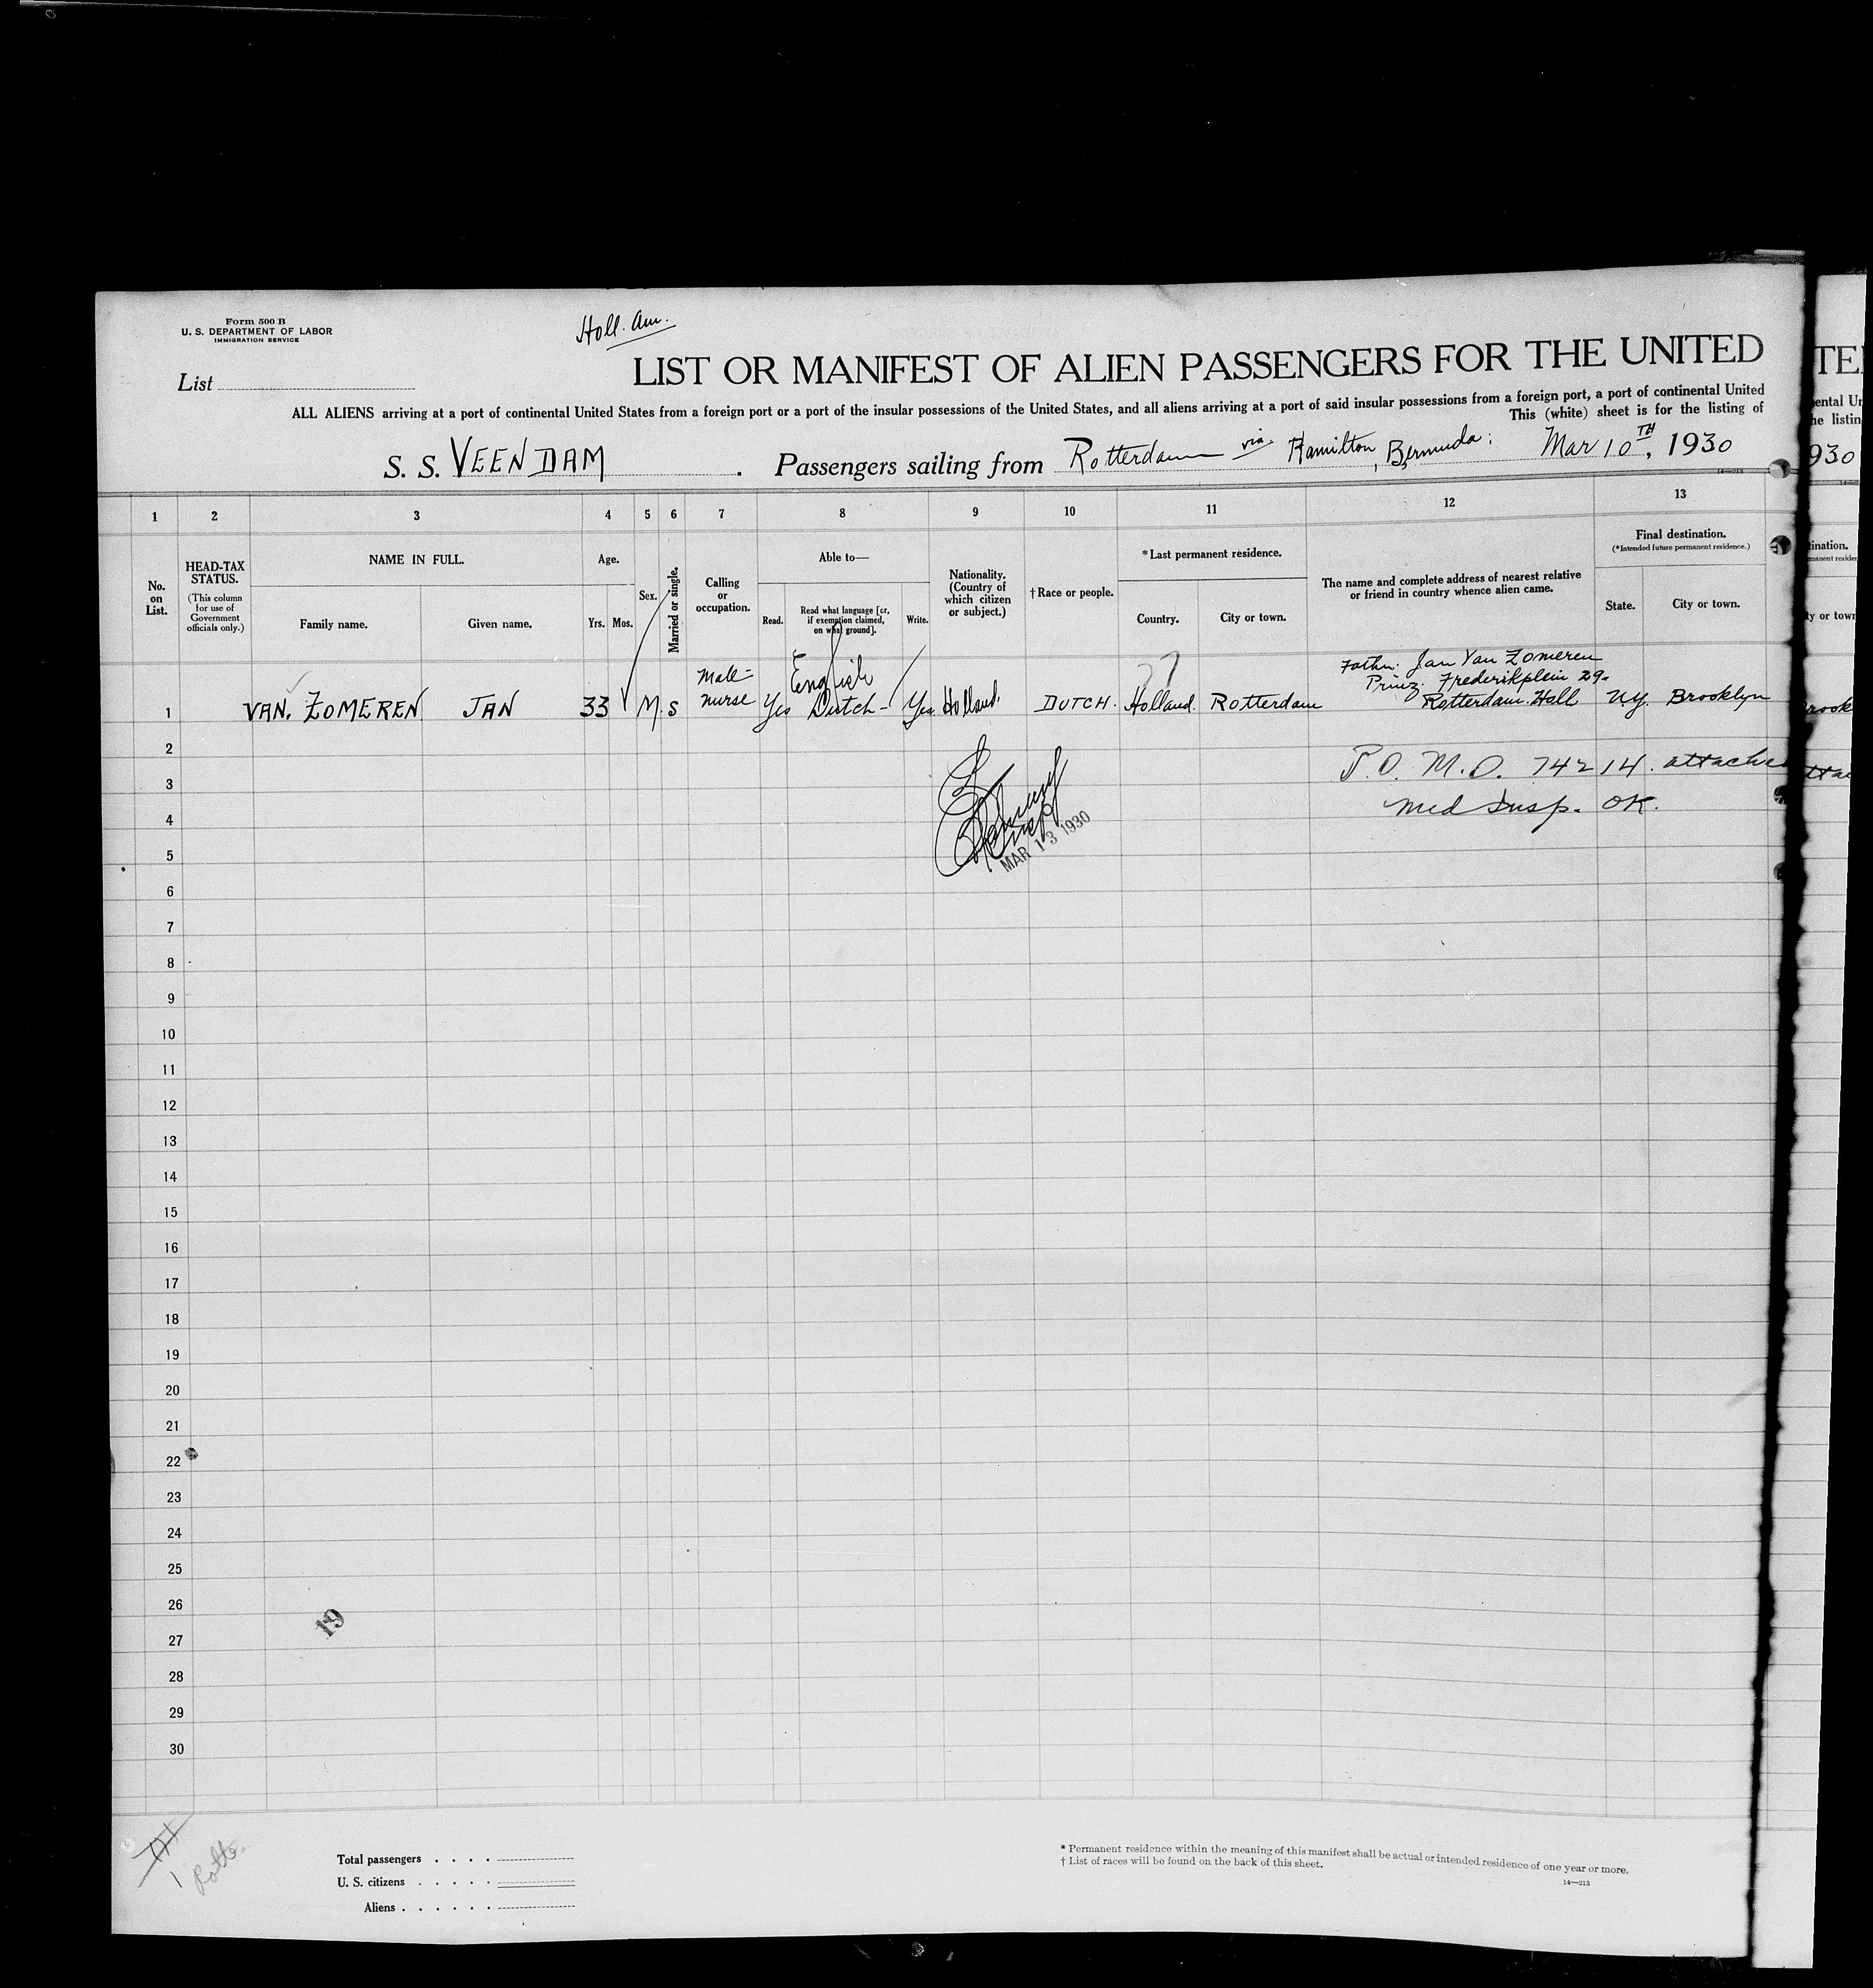 Form 500 B
U. S. DEPARTMENT OF LABOR
IMMIGRATION SERVICE
Holl. Am.
List
LIST OR MANIFEST OF ALIEN PASSENGERS FOR THE UNITED
ALL ALIENS arriving at a port of continental United States from a foreign port or a port of the insular possessions of the United States, and all aliens arriving at a port of said insular possessions from a foreign port, a port of continental United
This (white) sheet is for the listing of
S. S. VEENDAM . Passengers sailing from Rotterdam via Hamilton, Bermuda: Mar 10TH, 1930
14—213
1 2 3 4 5 6 7 8 9 10 11 12 13
No. on List.
HEAD-TAX STATUS.
(This column for use of Government officials only.)
NAME IN FULL.
Family name. Given name.
Age.
Yrs. Mos.
Sex.
Married or single.
Calling or occupation.
Able to—
Read.
Read what language [or, if exemption claimed, on what ground].
Write.
Nationality. (Country of which citizen or subject.)
†Race or people.
*Last permanent residence.
Country. City or town.
The name and complete address of nearest relative or friend in country whence alien came.
Final destination.
(*Intended future permanent residence.)
State. City or town.
1 VAN. ZOMEREN JAN 33 M. S male- nurse Yes English Dutch- Yes. Holland. DUTCH. Holland. Rotterdam
Father. Jan Van Zomeren
Prinz. Frederikplein 29.
Rotterdam. Holl N.Y. Brooklyn
2
P.O. M.O. 74214. attached
3
med Insp. OK.
4
MAR 13 1930
5
6
7
8
9
10
11
12
13
14
15
16
17
18
19
20
21
22
23
24
25
26
19
27
28
29
30
1 Rott.
Total passengers . . . .
U. S. citizens . . . . .
Aliens . . . . . .
* Permanent residence within the meaning of this manifest shall be actual or intended residence of one year or more.
† List of races will be found on the back of this sheet.
14—213